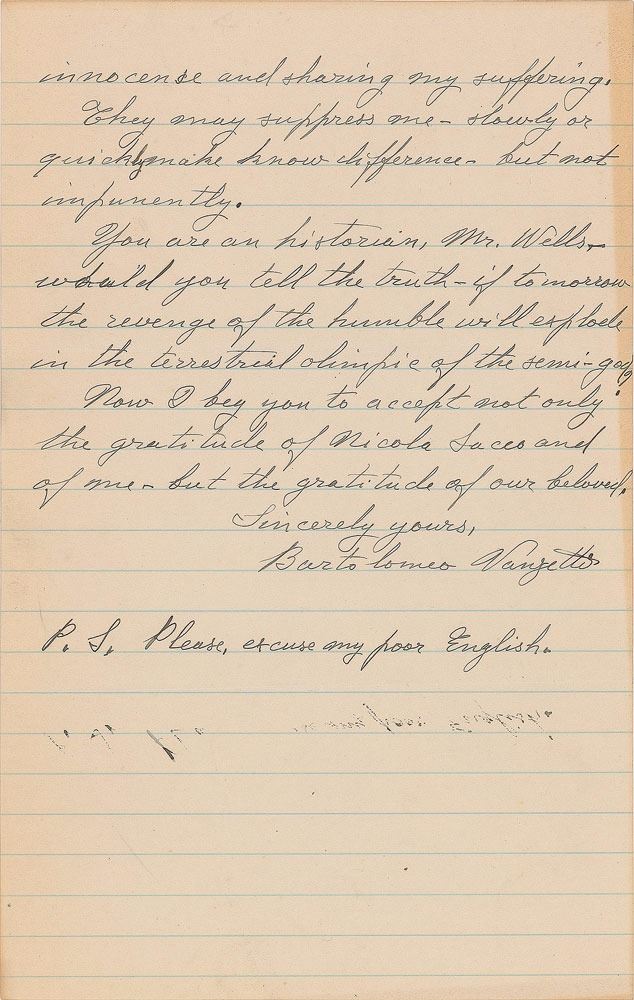 innocense and sharing my suffering.
They may suppress me - slowly or
quickly make know difference - but not
impunently.
You are an historian, Mr. Wells,
would you tell the truth - if tomorrow
the revenge of the humble will esplode
in the terrestrial olimpic of the semi-god?
Now I beg you to accept not only
the gratitude of Nicola Sacco and
of me - but the gratitude of our beloved.
Sincerely yours,
Bartolomeo Vanzetti
P. S. Please, escuse my poor English.